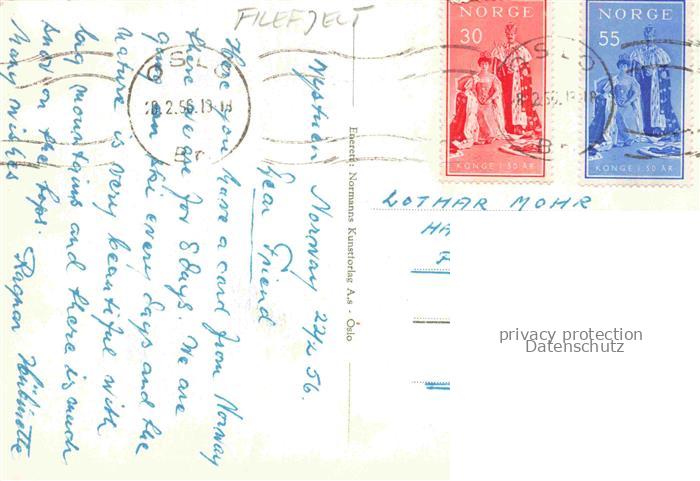 FILEFJELL
NORGE
30
KONGE I 50 ÅR
NORGE
55
KONGE I 50 ÅR
OSLO
2.56.13-18
Br
OSLO
2.56.13-18
Br
Mystuen Norway 22/2 56.
Dear Friend
Here you have a card from Norway
there we are for 8 days. We are
every days and the
nature is very beautiful with
big mountains and there is much
snow on the tops.
Many wishes Ragnar
Enerett: Normanns Kunstforlag A.s - Oslo
LOTHAR MOHR
HA
R
privacy protection
Datenschutz